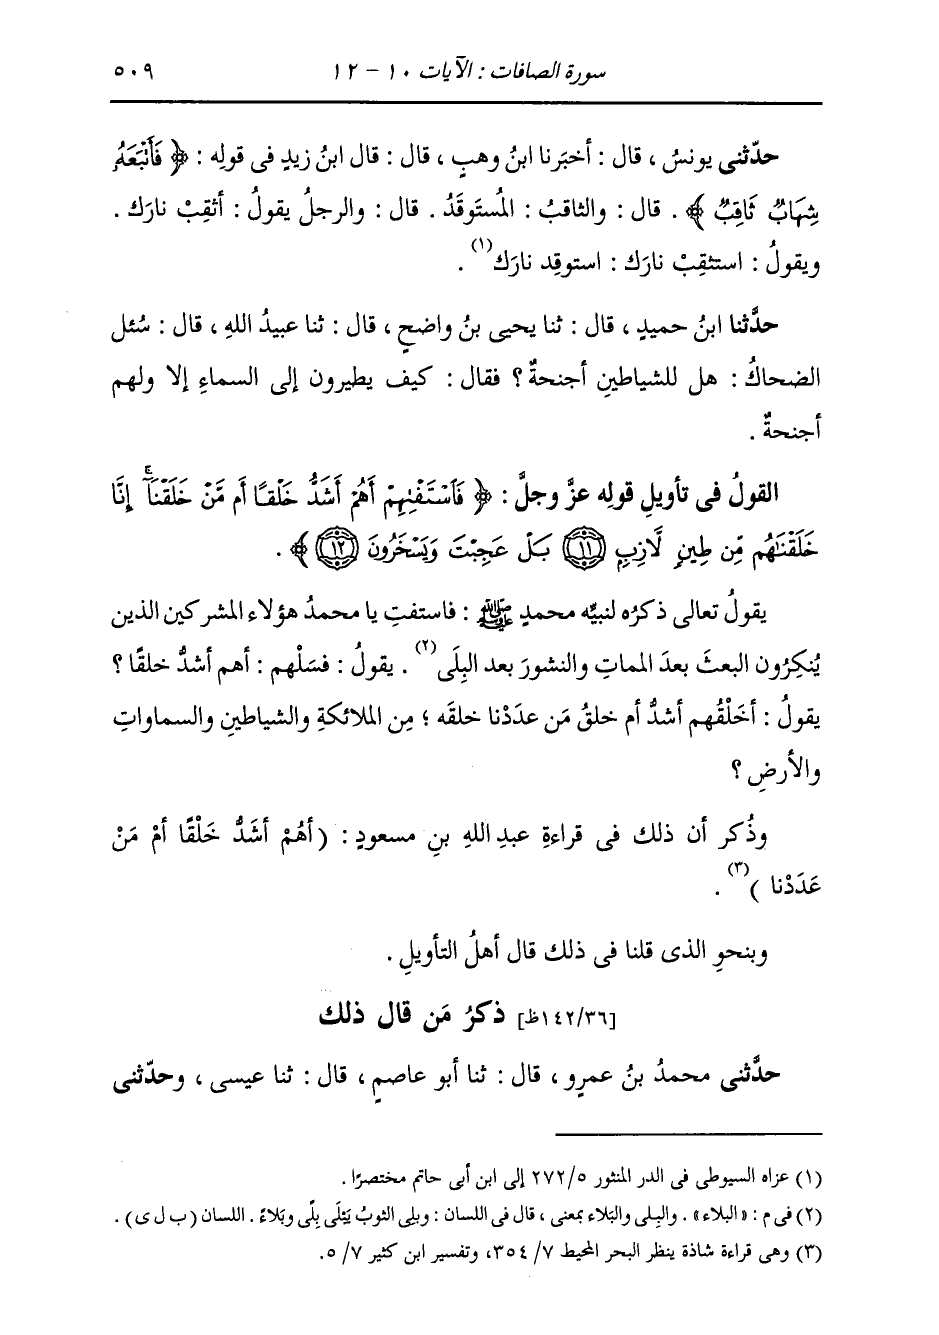 سورة الصافات : الآيات ١٠ - ١٢ ٥٠٩
حدّثنى يونسُ ، قال : أخبَرنا ابنُ وهبٍ ، قال : قال ابنُ زيدٍ فى قولِه : ﴿ فَأَتْبَعَهُۥ
شِهَابٌ ثَاقِبٌ ﴾ . قال : والثاقبُ : المُستَوقَدُ . قال : والرجلُ يقولُ : أثقِبْ نارَك .
ويقولُ : استثقِبْ نارَك : استوقِد نارَك(١) .
حدَّثنا ابنُ حميدٍ ، قال : ثنا يحيى بنُ واضحٍ ، قال : ثنا عبيدُ اللهِ ، قال : سُئل
الضحاكُ : هل للشياطينِ أجنحةٌ ؟ فقال : كيف يطيرون إلى السماءِ إلا ولهم
أجنحةٌ .
القولُ فى تأويلِ قولِه عزَّ وجلَّ : ﴿ فَٱسْتَفْتِهِمْ أَهُمْ أَشَدُّ خَلْقًا أَم مَّنْ خَلَقْنَآ ۚ إِنَّا
خَلَقْنَٰهُم مِّن طِينٍ لَّازِبٍ ﴿١١﴾ بَلْ عَجِبْتَ وَيَسْخَرُونَ ﴿١٢﴾ ﴾ .
يقولُ تعالى ذكرُه لنبيِّه محمدٍ ﷺ : فاستفتِ يا محمدُ هؤلاء المشركين الذين
يُنكِرُون البعثَ بعدَ المماتِ والنشورَ بعد البِلَى(٢) . يقولُ : فسَلْهم : أهم أشدُّ خلقًا ؟
يقولُ : أخَلْقُهم أشدُّ أم خلقُ مَن عدَدْنا خلقَه ؛ مِن الملائكةِ والشياطينِ والسماواتِ
والأرضِ ؟
وذُكر أن ذلك فى قراءةِ عبدِ اللهِ بنِ مسعودٍ : ( أهُمْ أشَدُّ خَلْقًا أمْ مَنْ
عَدَدْنا )(٣) .
وبنحوِ الذى قلنا فى ذلك قال أهلُ التأويلِ .
[١٤٢/٣٦ظ] ذكرُ مَن قال ذلك
حدَّثنى محمدُ بنُ عمرٍو ، قال : ثنا أبو عاصمٍ ، قال : ثنا عيسى ، وحدّثنى
(١) عزاه السيوطى فى الدر المنثور ٢٧٢/٥ إلى ابن أبى حاتم مختصرًا .
(٢) فى م : « البلاء » . والبِلى والبَلاء بمعنى ، قال فى اللسان : وبلى الثوبُ يَبْلَى بِلًى وبَلاءً . اللسان (ب ل ى) .
(٣) وهى قراءة شاذة ينظر البحر المحيط ٧/ ٣٥٤، وتفسير ابن كثير ٧/ ٥.